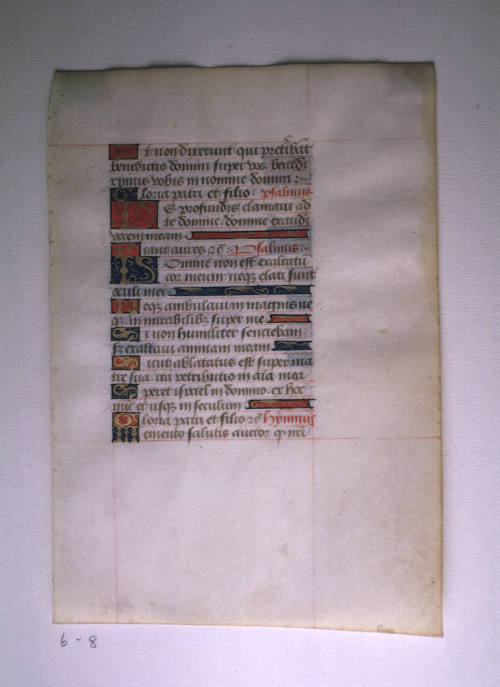 Et non dixerunt qui preteribāt
benedictio domini super vos benedi
ximus vobis in nomine domini:
Gloria patri et filio: Psalmus
DE profundis clamavi ad
te domine: domine exaudi
vocem meam
Fiant aures ꝛc̄: Psalmus:
DOmine non est exaltatū
cor meum: neqꝫ elati sunt
oculi mei
Neqꝫ ambulavi in magnis ne
qꝫ in mirabilibꝫ super me
Si non humiliter sentiebam
sꝫ exaltavi animam meam
Sicut ablactatus est super ma
tre sua: ita retributio in aīa mea
Speret israel in domino: ex hoc
nunc et usqꝫ in seculum
Gloria patri et filio ꝛc̄ Hymnus
Memento salutis auctor qꝫ nr̄i
6-8